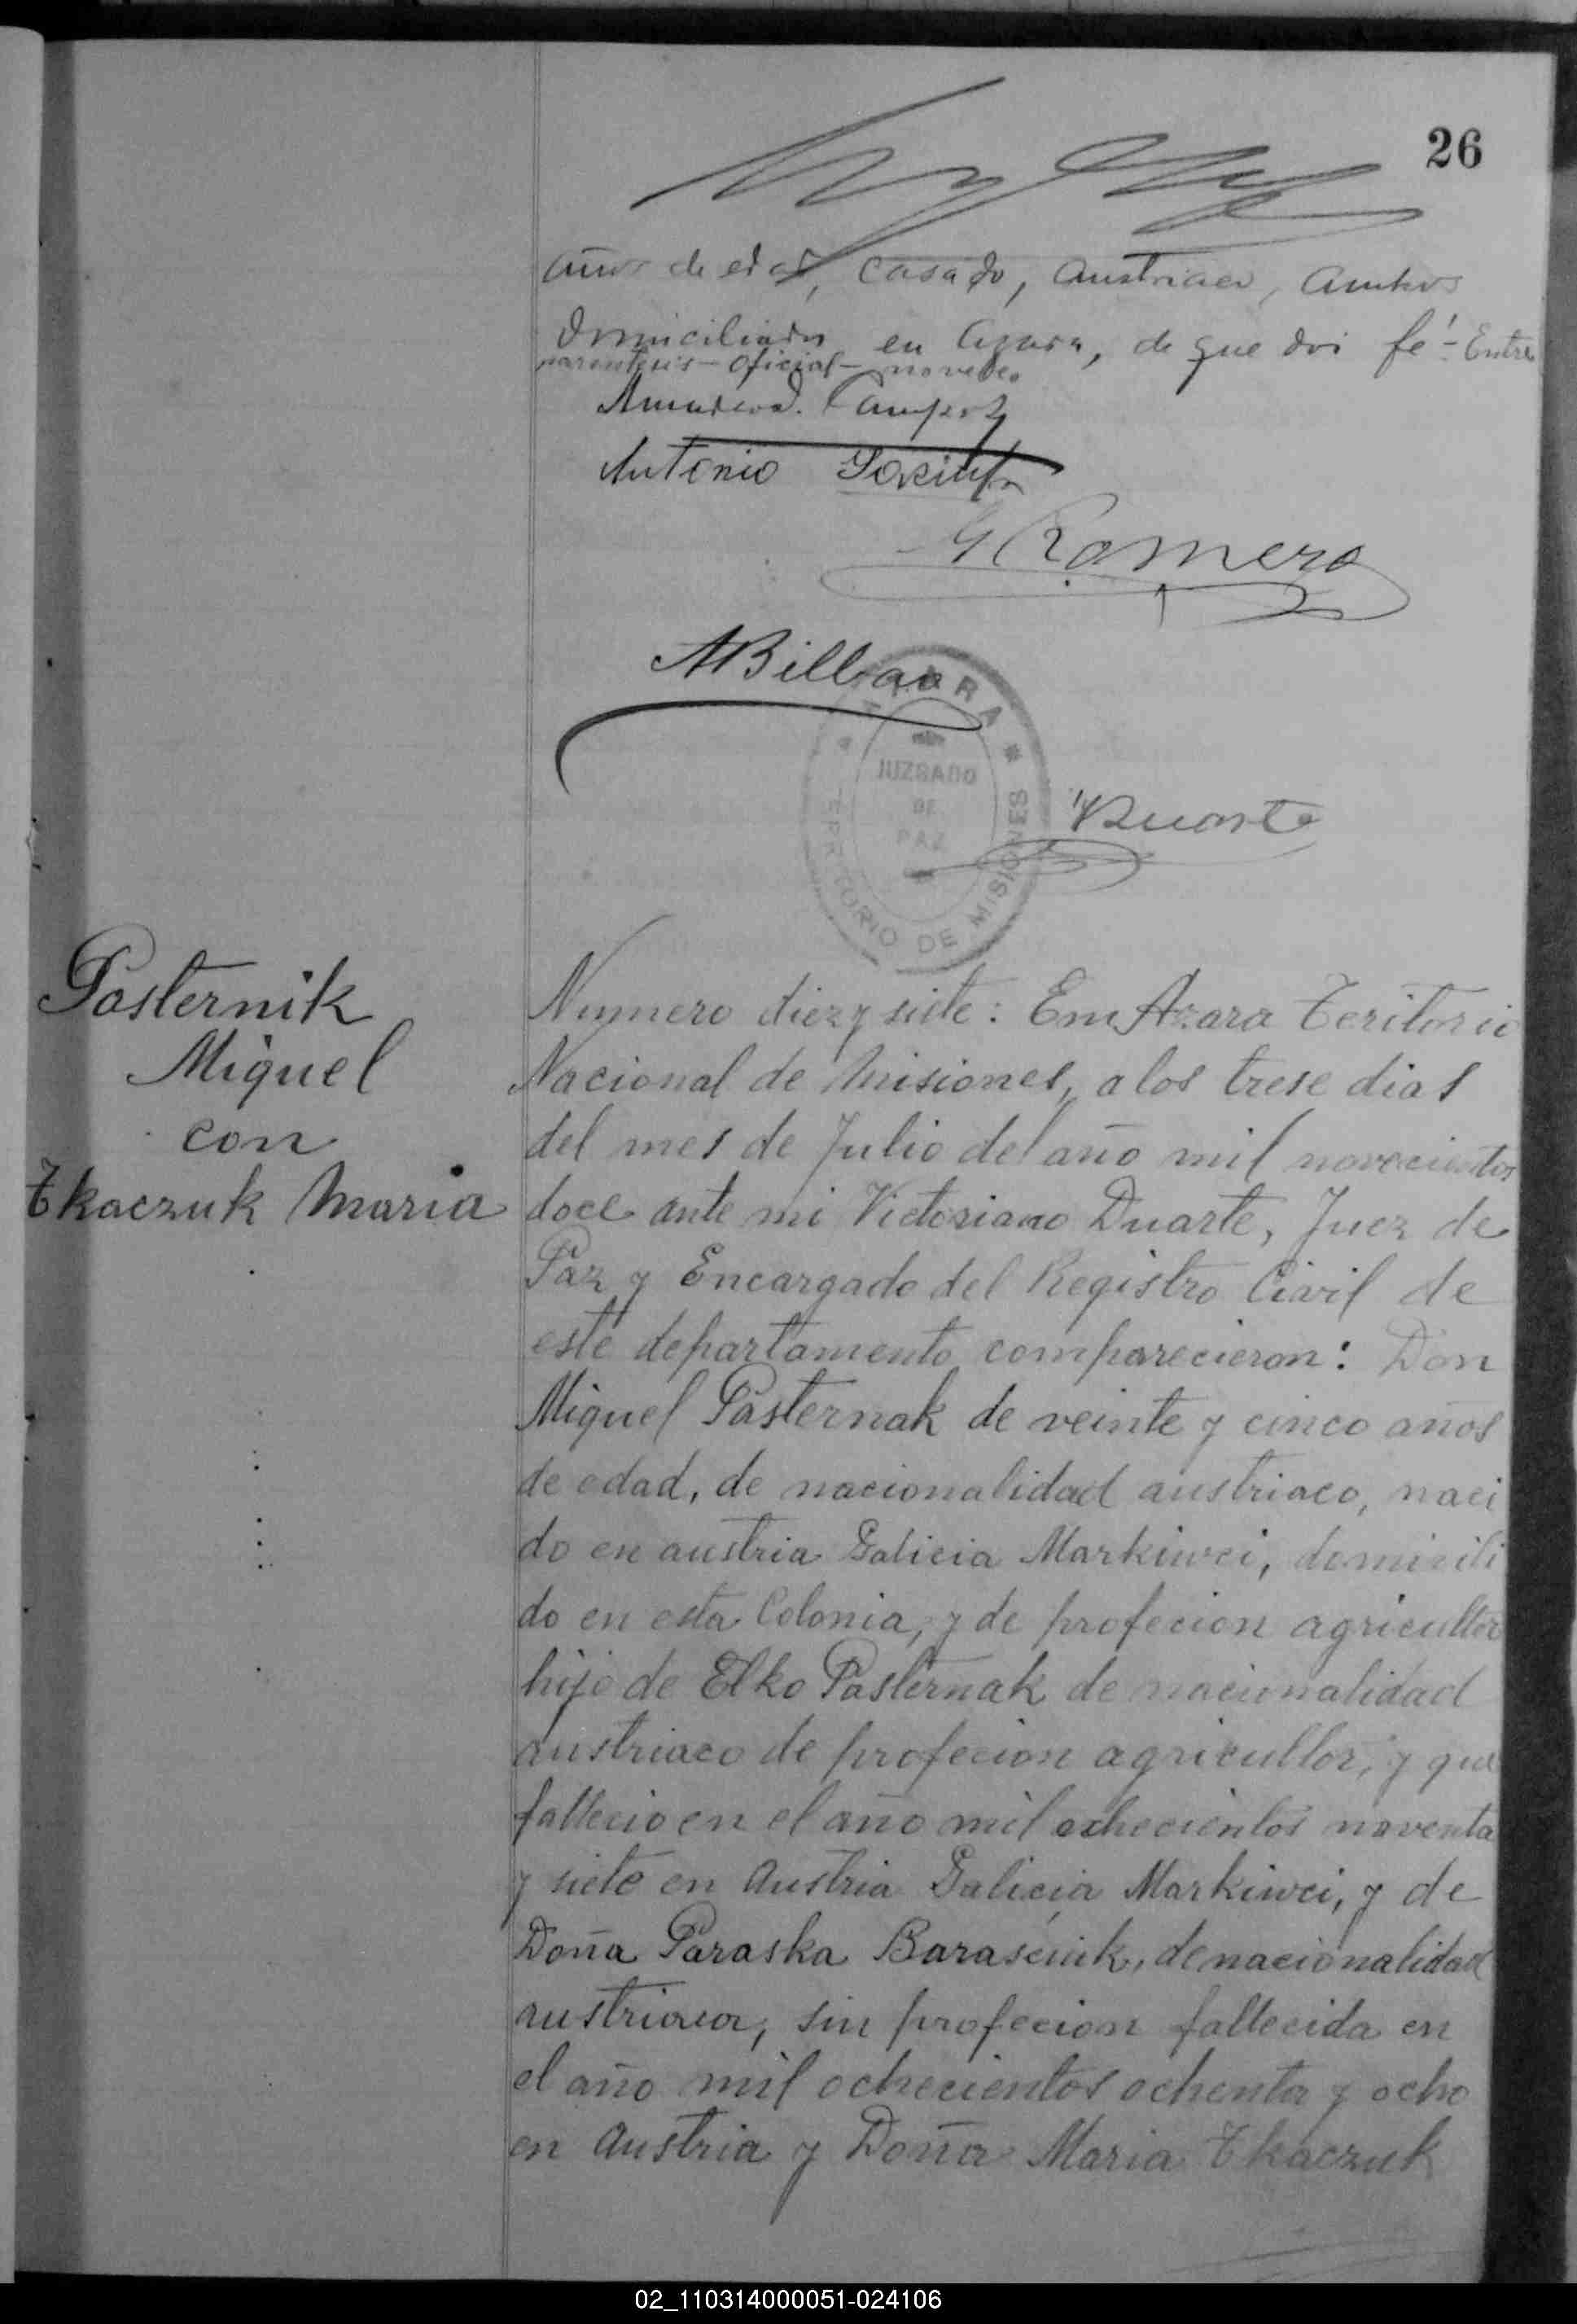 26
años de edad, casado, austriaco, ambos
domiciliados en Azara, de que doi fé - Entre
parentesis - Oficial - no vale.
Antonio
G Romero
ABilbao
AZARA
JUZGADO
DE
PAZ
TERRITORIO DE MISIONES
VDuarte
Pasternik
Miguel
con
Tkaczuk Maria
Numero diez y siete: Em Azara Teritorio
Nacional de Misiones, a los trese dias
del mes de Julio del año mil novecientos
doce ante mi Victoriano Duarte, Juez de
Paz y Encargado del Registro Civil de
este departamento comparecieron: Don
Miguel Pasternak de veinte y cinco años
de edad, de nacionalidad austriaco, naci
do en austria Galicia Markiwci, domicili
do en esta Colonia, y de profecion agricultor
hijo de Elko Pasternak de nacionalidad
austriaco de profecion agricultor, y que
fallecio en el año mil ochecientos noventa
y siete en Austria Galicia Markiwci, y de
Doña Paraska Baraseiuk, de nacionalidad
austriaca, sin profecion fallecida en
el año mil ochecientos ochenta y ocho
en Austria y Doña Maria Tkaczuk
02_110314000051-024106